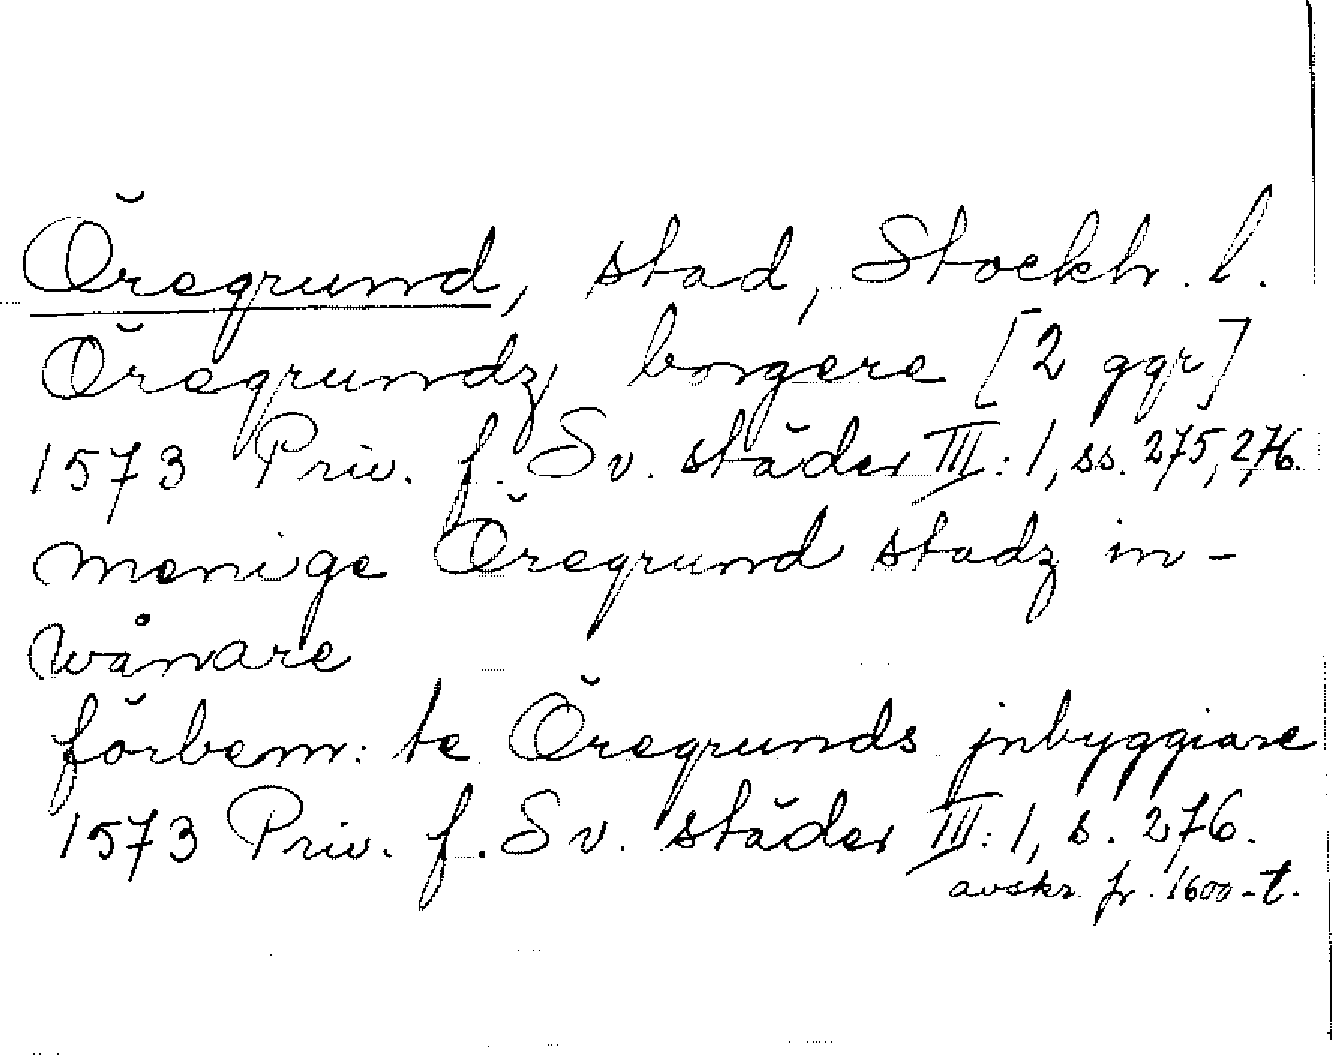 Öregrund, stad, Stockh. l.
Öregrundz borgere [2 ggr]
1573 Priv. f. Sv. städer III: 1, ss. 275, 276.
menige Öregrund stadz in-
wånare
förbem: te Öregrunds jnbyggiare
1573 Priv. f. Sv. städer III: 1, s. 276.
avskr. fr. 1600-t.